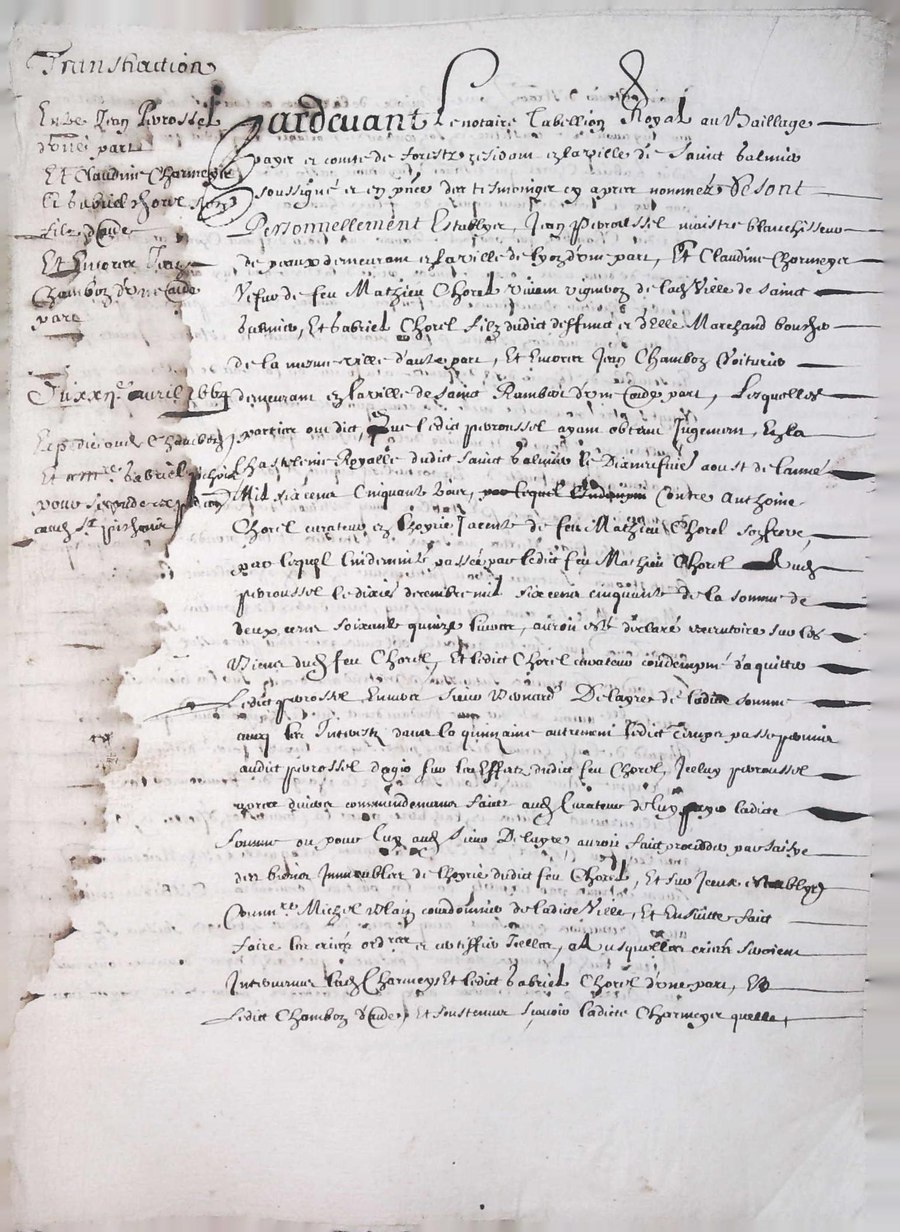 Transaction
Entre Jean Pivrossel
d'une part
Et Claudine Charmeyer
Et Gabriel Chorel son
filz d'au(tre)
Et Encores Jean
Chamboz d'une au(tre)
part
Du xx avril 166
Expedié aud Chamboz
Et Gabriel
pour
Pardevant Le notaire Tabellion Royal au Baillage
pays et comté de forestz residam en la ville de Sainct Galmier
soussigné et en pnce des tesmoings cy apres nommez Se sont
Personnellement Establys, Jean Pivroussel maistre blanchisseur
de peaux demeuram en la ville de Lyoz d'une part, Et Claudine Charmeyer
Vefue de feu Mathieu Chorel vivam vigneroz de lad Ville de sainct
Galmier, Et Gabriel Chorel filz dudict deffunct et d'Elle Marchand boucher
de la mesme ville d'autre part, Et Encores Jean Chamboz Voiturier
demeuram en la ville de Sainct Rambert d'une autre part, Lesquelles
parties ont dict, Que ledict pivroussel ayam obtenu Jugemem, En la
Chastelenie Royalle dudict Sainct Galmier le Dixneufie aoust de lanne
Mil six cens Cinquante Contre Anthoine
Chorel curateur en Lhoyrie Jacente de feu Mathieu Chorel soz frere,
par lequel lindemnité passée par ledict feu Mathieu Chorel Aud
pivroussel le decembre mil six cens cinquante de la somme de
deux cens soixante quinze livres, auroit esté declaré executoire sur les
Biens dud feu Chorel, Et ledict Chorel curateur condempné d'aquitter
Ledict pivrossel Envers Sieur Bernard Delayre de ladicte somme
avec les Interestz dans la quinzaine autrement ledict temps passé permis
audict pivrossel d'agir sur les Effectz dudict feu Chorel, Iceluy pivroussel
apres divers commandemens faictz aud Curateur de luy payer ladicte
somme ou pour luy aud Sieur Delayre auroit faict proceder par saisye
des biens Immeubles de Lhoyrie dudict feu Chorel, Et sur Iceux estably
Commre Michel Blain courdonnier de ladicte Ville, Et Ensuitte faict
faire les criées ordres et certiffier Icelles, ausquelles criées seroient
Intervenus lad Charmeys Et ledict Gabriel Chorel d'une part, Et
Ledict Chamboz d'autre, Et soustenus sçavoir ladicte Charmeyer quelle